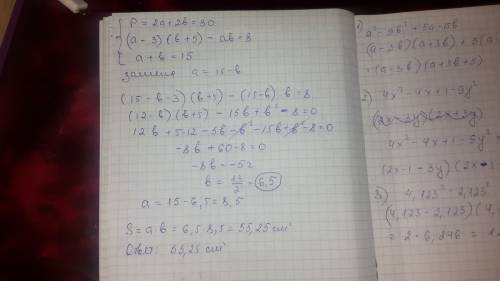 P = 2a + 2b = 30
(a - 3)(b + 5) - ab = 8
a + b = 15
замена a = 15 - b
(15 - b - 3)(b + 5) - (15 - b) b = 8
(12 - b)(b + 5) - 15b + b² - 8 = 0
12b + 5·12 - 5b - b² - 15b + b² - 8 = 0
-8b + 60 - 8 = 0
-8b = -52
b = 13/2 = 6,5
a = 15 - 6,5 = 8,5
S = ab = 6,5·8,5 = 55,25 см²
Ответ: 55,25 см²
a² - 9b² + 5a - 15b
(a - 3b)(a + 3b) + 5(a -
= (a - 3b)(a + 3b + 5)
2) 4x² - 4x + 1 - 9y²
4x² - 4x + 1 - 9y²
(2x - 1 - 3y)(2x -
3) 4,123² - 2,123²
(4,123 - 2,123)(4,
= 2 · 6,246 = 12